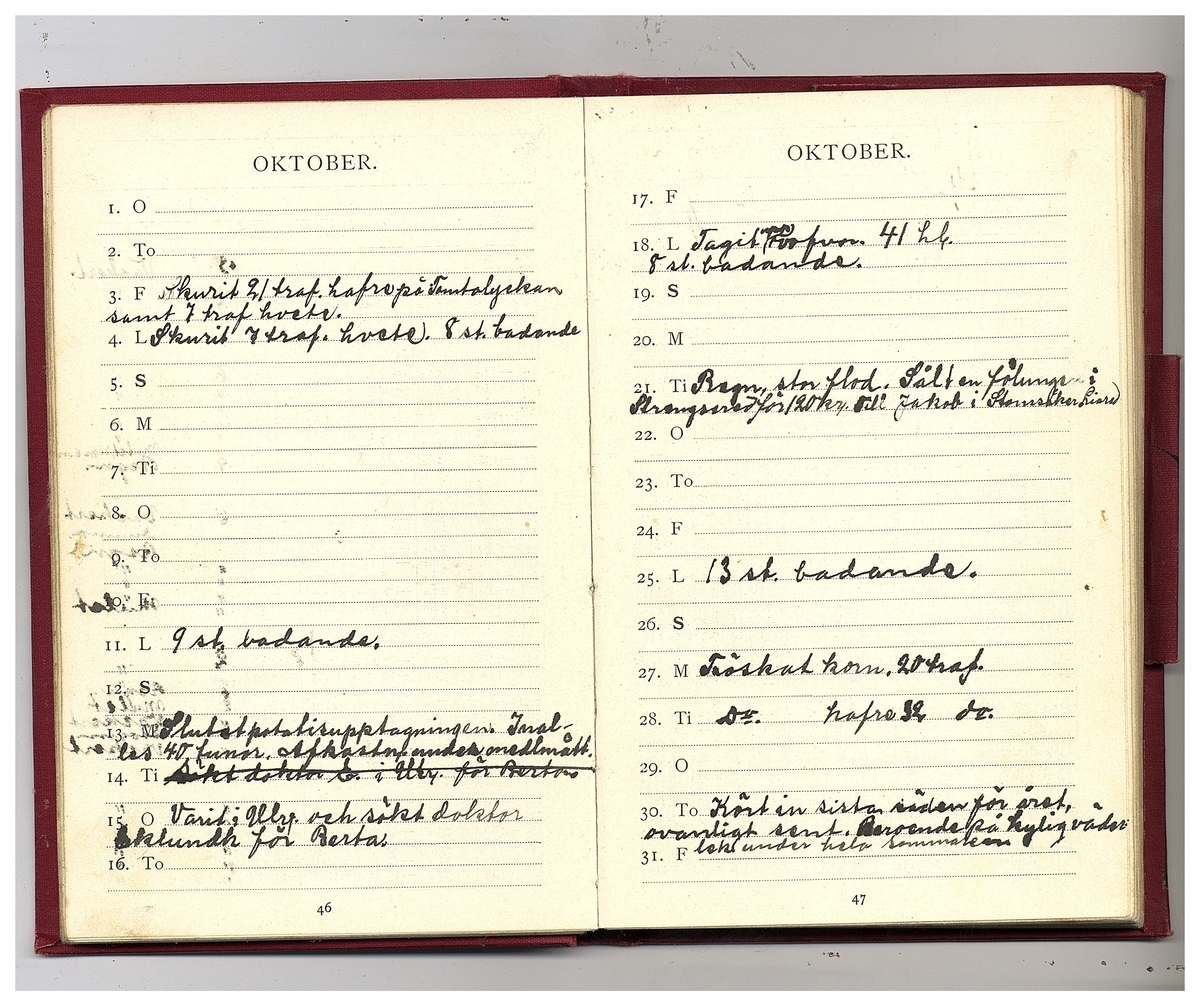 OKTOBER.
1. O
2. To
3. F Skurit 21 traf. hafre på Tomtalyckan
samt 7 traf hvete.
4. L Skurit 7 traf. hvete. 8 st. badande
5. S
6. M
7. Ti
8. O
9. To
10. F
11. L 9 st. badande.
12. S
13. M Slutat potatisupptagningen. Inal-
les 40 tunor. Afkastn. under medelmått.
14. Ti Sökt doktor E. i Ulr. för Berta
15. O Varit i Ulr. och sökt doktor
Eklundh för Berta.
16. To
46
OKTOBER.
17. F
18. L Tagit upp 41 hl.
8 st. badande.
19. S
20. M
21. Ti Regn, stor flod. Sålt en fölunge i
för 120 kr. till Jakob i
22. O
23. To
24. F
25. L 13 st. badande.
26. S
27. M Tröskat korn, 20 traf.
28. Ti Do. hafre 32 do.
29. O
30. To Kört in sista säden för året,
ovanligt sent. Beroende på kylig väder
31. F lek under hela sommaren
47